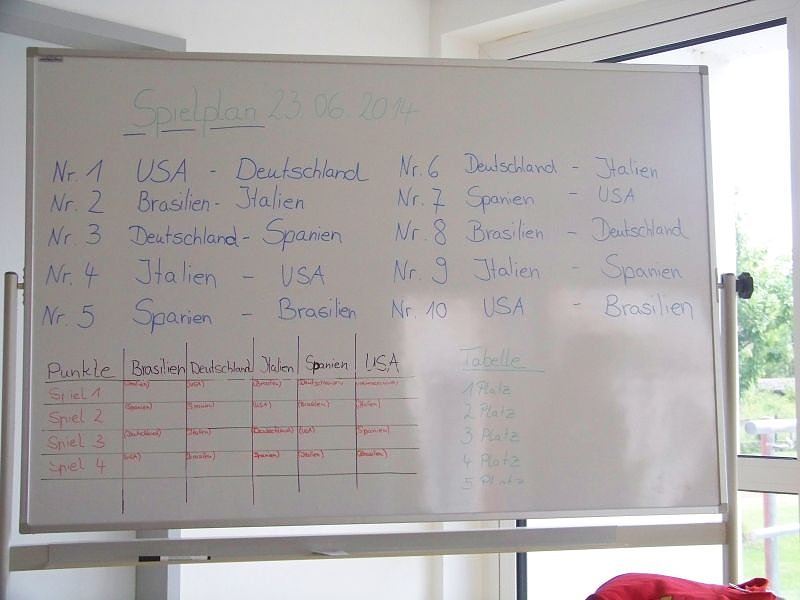 Spielplan 23.06.2014
Nr. 1 USA - Deutschland
Nr. 2 Brasilien - Italien
Nr. 3 Deutschland - Spanien
Nr. 4 Italien - USA
Nr. 5 Spanien - Brasilien
Nr. 6 Deutschland - Italien
Nr. 7 Spanien - USA
Nr. 8 Brasilien - Deutschland
Nr. 9 Italien - Spanien
Nr. 10 USA - Brasilien
Punkte Brasilien Deutschland Italien Spanien USA
Spiel 1 (Italien) (USA) (Brasilien) (Deutschland)
Spiel 2 (Spanien) (Spanien) (USA) (Brasilien) (Italien)
Spiel 3 (Deutschland) (Italien) (Deutschland) (USA) (Spanien)
Spiel 4 (USA) (Brasilien) (Spanien) (Italien) (Brasilien)
Tabelle
1 Platz
2 Platz
3 Platz
4 Platz
5 Platz